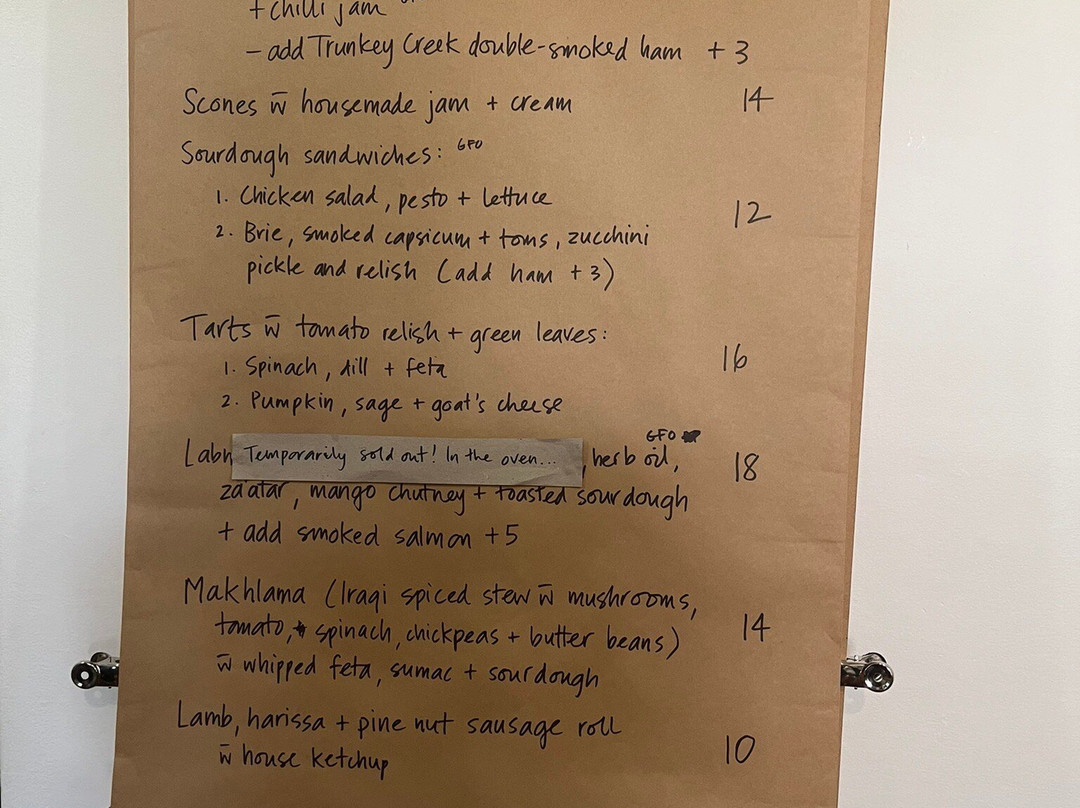 + chilli jam
- add Trunkey Creek double-smoked ham + 3
Scones w̄ housemade jam + cream 14
Sourdough sandwiches: GFO
1. Chicken salad, pesto + lettuce
12
2. Brie, smoked capsicum + toms, zucchini
pickle and relish (add ham + 3)
Tarts w̄ tomato relish + green leaves:
1. Spinach, dill + feta 16
2. Pumpkin, sage + goat's cheese
GFO
Labn Temporarily sold out! In the oven... , herb oil, 18
za'atar, mango chutney + toasted sourdough
+ add smoked salmon +5
Makhlama (Iraqi spiced stew w̄ mushrooms,
tomato, spinach, chickpeas + butter beans) 14
w̄ whipped feta, sumac + sourdough
Lamb, harissa + pine nut sausage roll
w̄ house ketchup 10